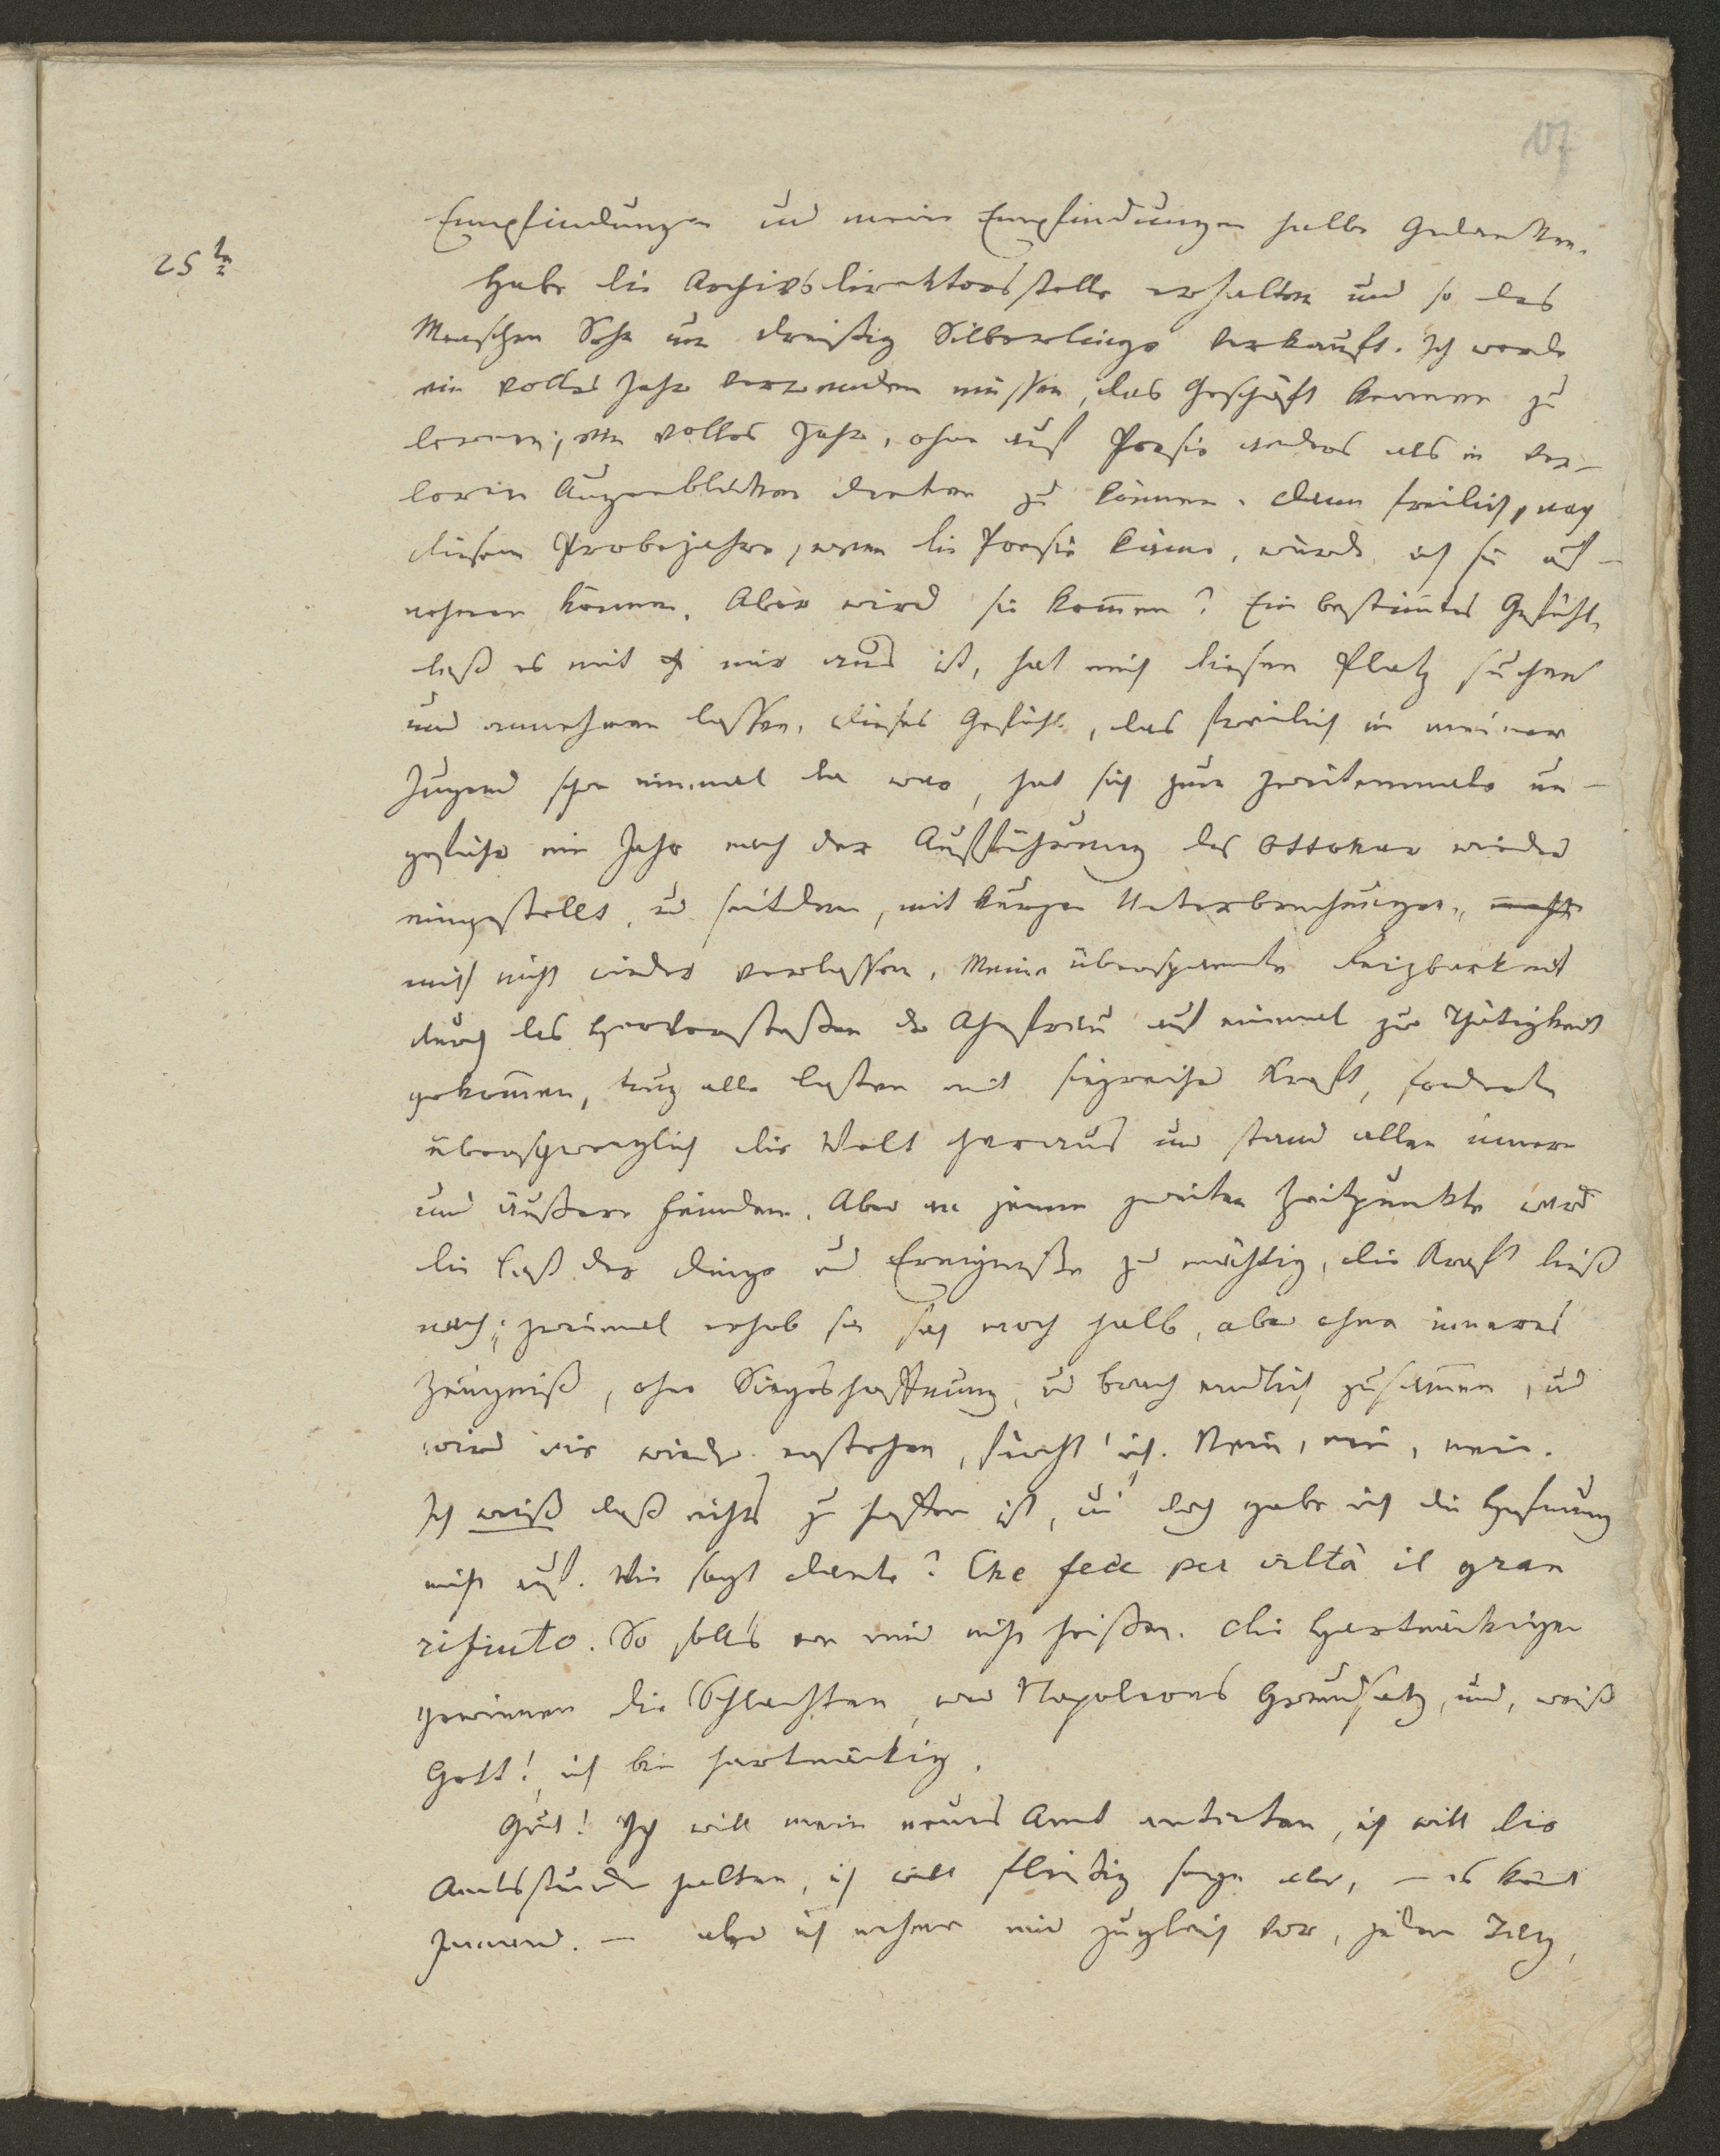 107
Empfindungen und meine Empfindungen halbe Gedanken.
25tn
Habe die Archivsdirektorsstelle erhalten und so des
Menschen Sohn um dreißig Silberlinge verkauft. Ich werde
ein volles Jahr verwenden müssen, das Geschäft kennen zu
lernen; ein volles Jahr, ohne auf Poesie anders als in ver–
lornen Augenblicken denken zu können. Dann freilich, nach
diesem Probejahre, wenn die Poesie käme, würde ich sie auf–
nehmen können. Aber wird sie kom̅en? Ein bestim̅tes Gefühl,
daß es mit mir aus ist, hat mich diesen Platz suchen
und annehmen lassen. Dieses Gefühl, das freilich in meiner
Jugend schon einmal da war, hat sich zum zweitenmale un–
gefähr ein Jahr nach der Aufführung des Ottokar wieder
eingestellt, und seitdem, mit kurzen Unterbrechungen, nicht
mich nicht wieder verlassen. Meine überspannte Reizbarkeit
durch das Hervorstoßen der Ahnfrau auf einmal zur Thätigkeit
gekom̅en, trug alle Lasten mit siegreicher Kraft, forderte
überschwenglich die Welt heraus und stand allen innern
und äußern Feinden. Aber in jenem zweiten Zeitpunkte ward
die Last der Dinge und Ereigniße zu mächtig, die Kraft ließ
nach; zweimal erhob sie sich noch halb, aber ohne inneres
Zeugniß, ohne Siegeshoffnung, und brach endlich zusam̅en, und
wird nie wieder erstehen, fürcht' ich. Nein, nein, nein.
Ich weiß daß nichts zu hoffen ist, und doch gebe ich die Hoffnung
nicht auf. Wie sagt Dante? Che fece per viltà il gran
rifiuto. So soll's von mir nicht heißen. Die Hartnäckigen
gewinnen die Schlachten, war Napoleons Grundsatz, und, weiß
Gott! ich bin hartnäckig.
Gut! Ich will mein neues Amt antreten, ich will die
Amtsstunden halten, ich will fleißig seyn aber, – es kom̅t
Jemand. – aber ich nehme mir zugleich vor, jeden Tag,